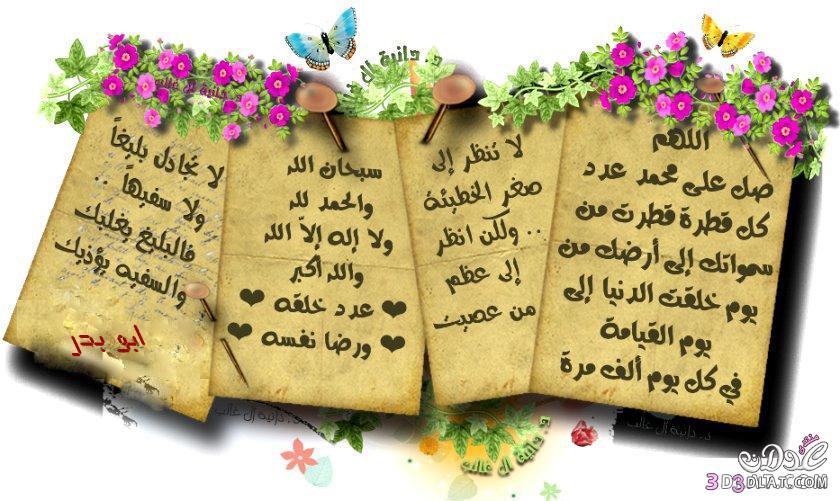 اللهم
صل على محمد عدد
كل قطرة قطرت من
سمواتك إلى أرضك من
يوم خلقت الدنيا إلى
يوم القيامة
في كل يوم ألف مرة
لا تنظر إلى
صغر الخطيئة
.. ولكن انظر
إلى عظم
من عصيت
سبحان الله
والحمد لله
ولا إله إلاّ الله
والله أكبر
❤ عدد خلقه ❤
❤ ورضا نفسه ❤
لا تجادل بليغاً
ولا سفيها ..
فالبليغ يغلبك
والسفيه يؤذيك
ابو بدر
د. دانية آل غالب
دانية آل غالب
د. دانية آل غالب
د. دانية آل غالب
د. دانية آل غالب
منتدى
عدلات
3D3DLAT.COM